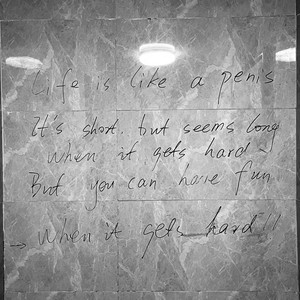 Life is like a penis
It's short. but seems long
when it gets hard
But you can have fun
→ when it gets hard!!